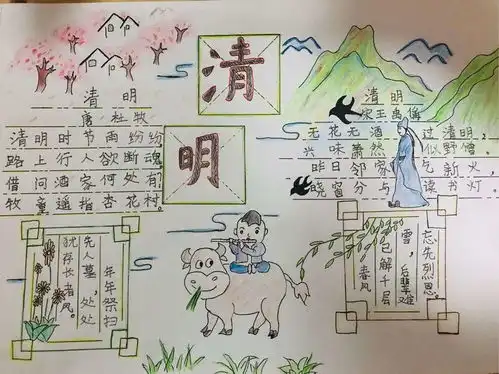 清明
清明
唐 杜牧
清明时节雨纷纷
路上行人欲断魂
借问酒家何处有
牧童遥指杏花村.
清明
宋王禹偁
无花无酒过清明,
兴味萧然似野僧.
昨日邻家乞新火,
晓窗分与读书灯.
年年祭扫
先人墓,处处
犹存长者风。
春风
已解千层
雪,后辈难
忘先烈恩。